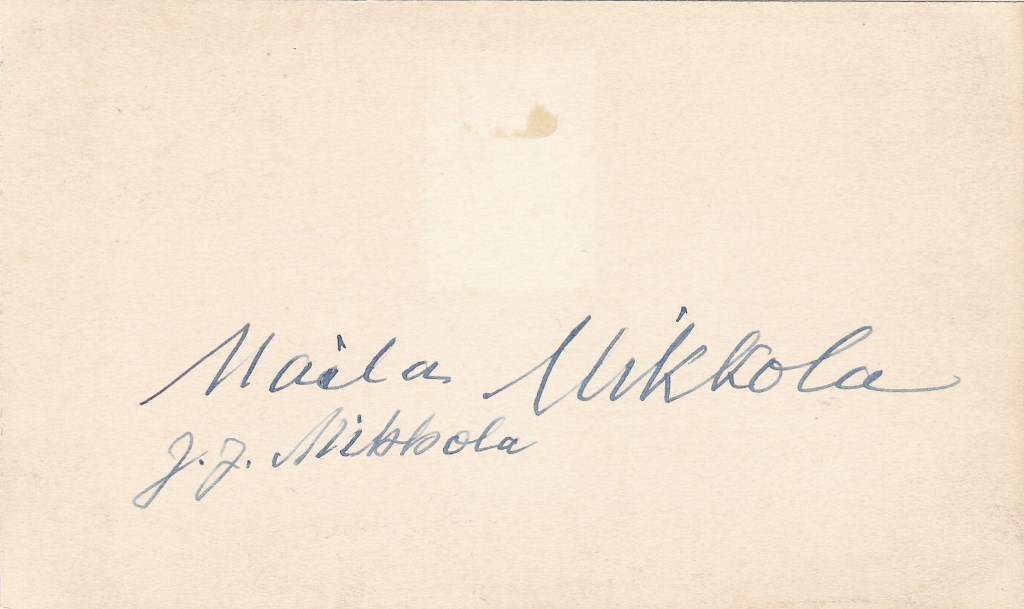 Maila Mikkola
J. J. Mikkola